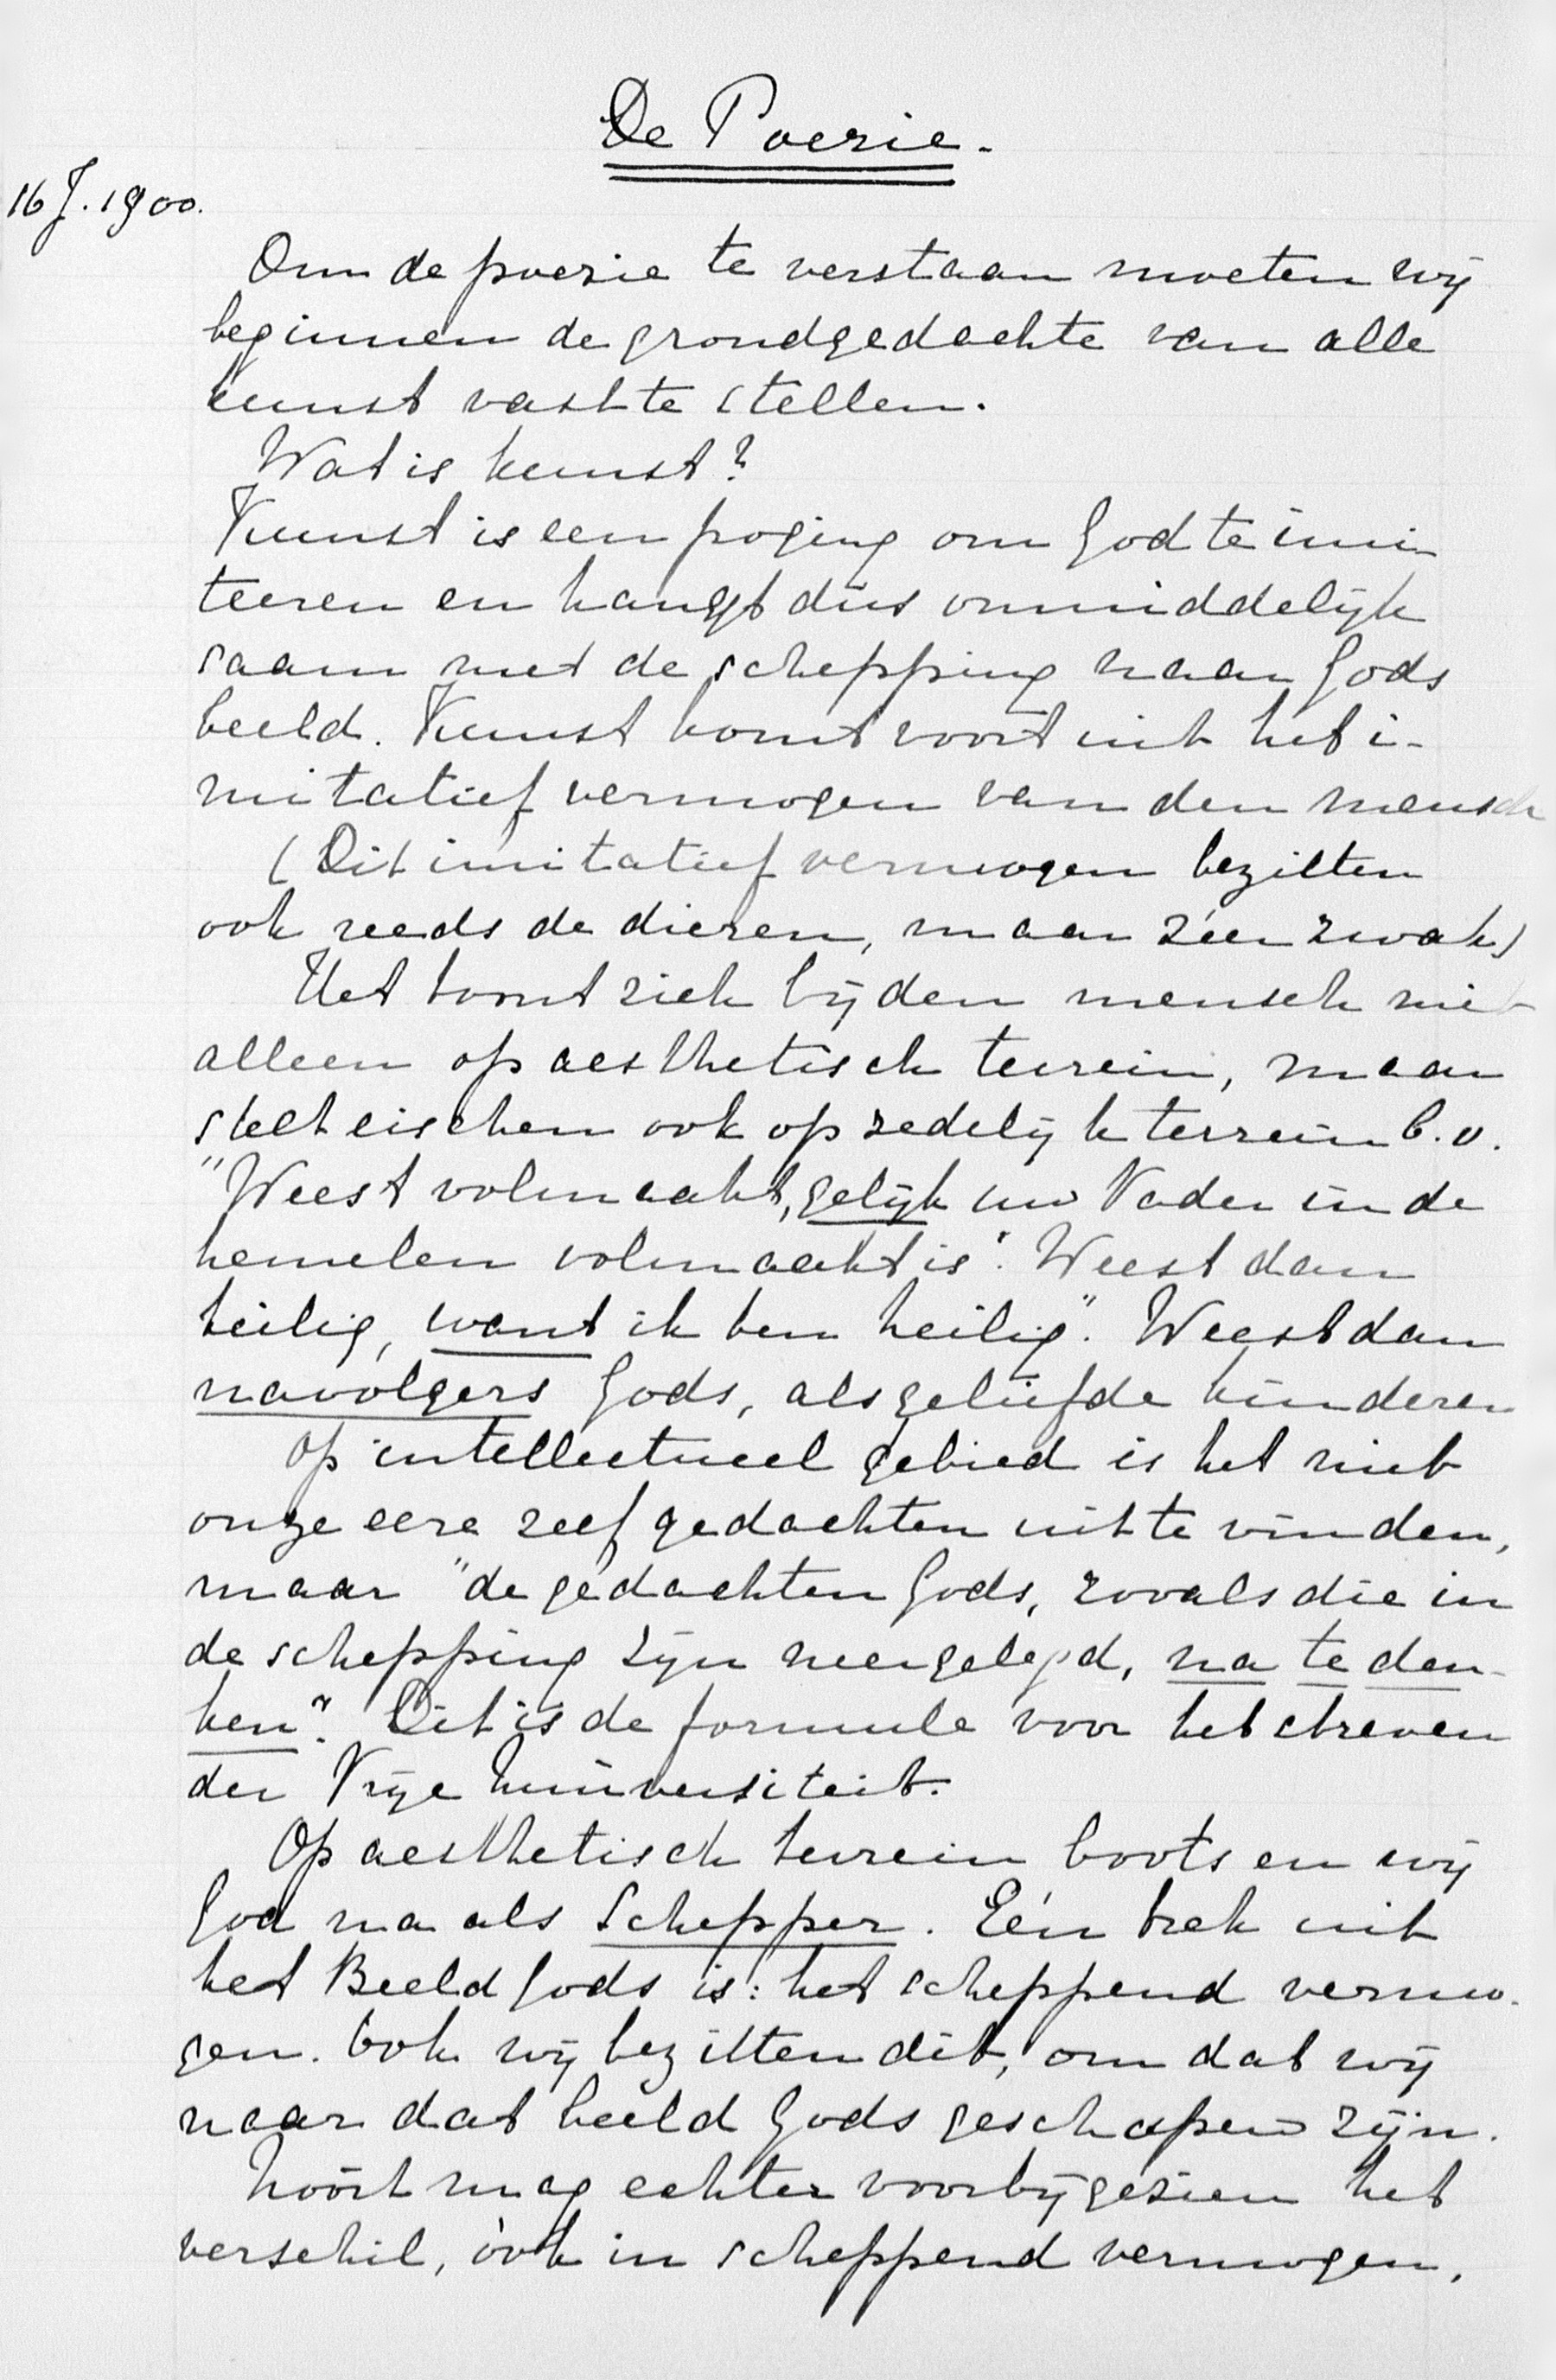 De Poezie.
16 J. 1900.
Om de poezie te verstaan moeten wij
beginnen de grondgedachte van alle
kunst vast te stellen.
Wat is kunst?
Kunst is een poging om God te imi-
teeren en hangt dus onmiddelijk
saam met de schepping naar Gods
beeld. Kunst komt voort uit het i-
mitatief vermogen van den mensch
(Dit imitatief vermogen bezitten
ook reeds de dieren, maar zéer zwak)
Het toont zich bij den mensch niet
alleen op aesthetisch terrein, maar
stelt eischen ook op zedelijk terrein b.v.
"Weest volmaakt, gelijk uw Vader in de
hemelen volmaakt is". Weest dan
heilig, want ik ben heilig". Weest dan
navolgers Gods, als geliefde kinderen
Op intellectueel gebied is het niet
onze eere zelf gedachten uit te vinden,
maar "de gedachten Gods, zooals die in
de schepping zijn neergelegd, na te den-
ken". Dit is de formule voor het streven
der Vrije Universiteit.
Op aesthetisch terrein bootsen wij
God na als Schepper. Eén trek uit
het Beeld Gods is: het scheppend vermo-
gen. Ook wij bezitten dit, omdat wij
naar dat beeld Gods geschapen zijn.
Nooit mag echter voorbijgezien het
verschil, óok in scheppend vermogen,